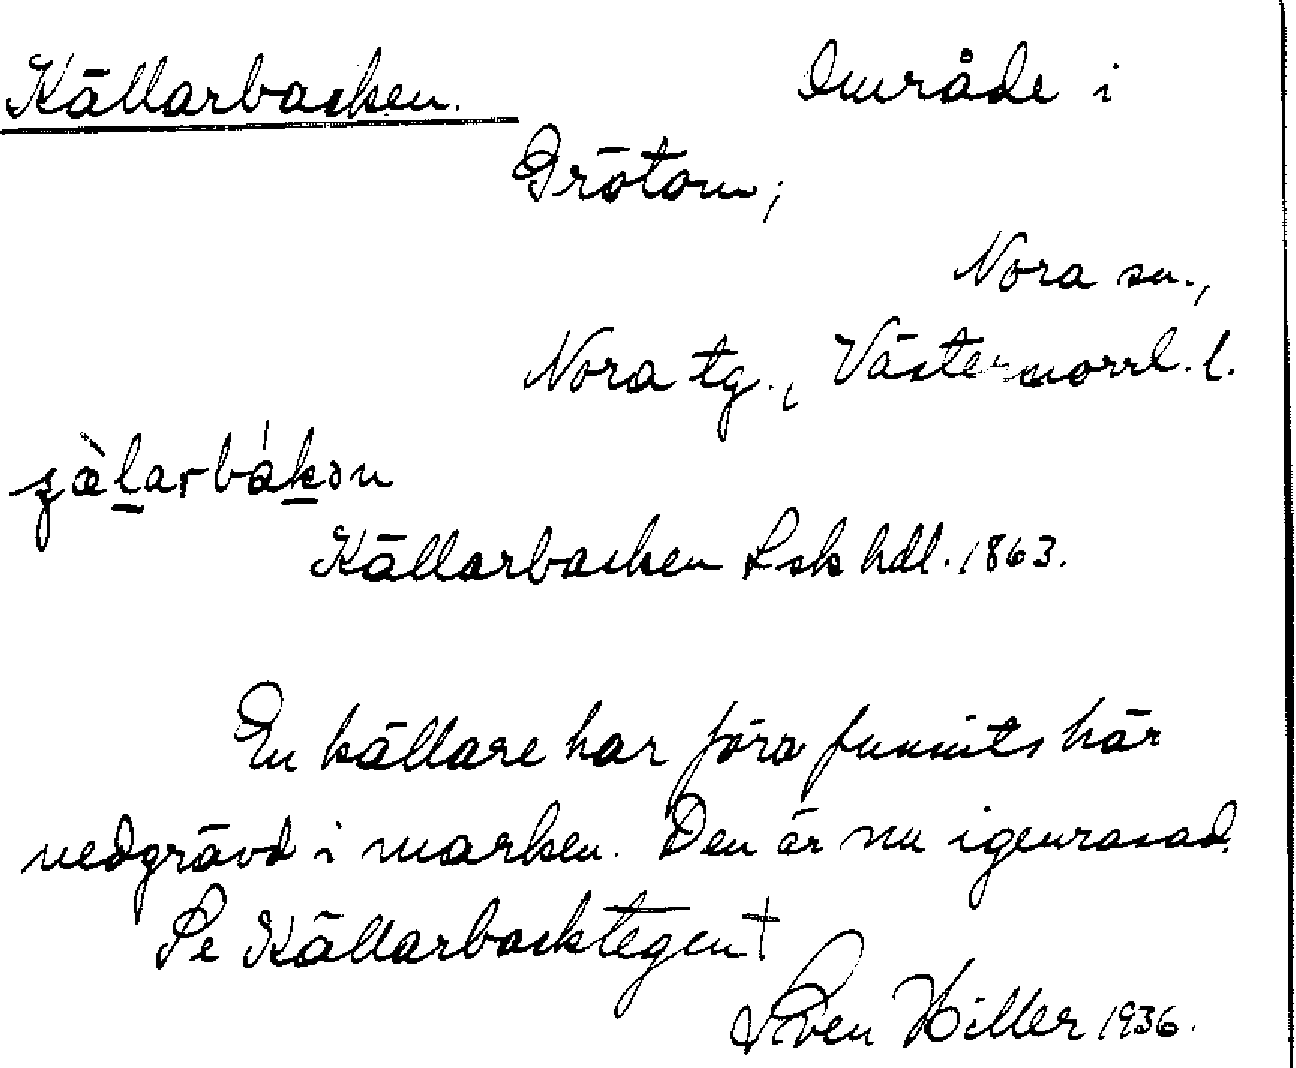 Källarbacken. Område i
Grötom,
Nora sn.,
Nora tg., Västernorrl. l.
Källarbacken Lsk hdl. 1863.
En källare har förr funnits här
nedgrävd i marken. Den är nu igenrasad.
Se Källarbacktegen †
Sven Hiller 1936.